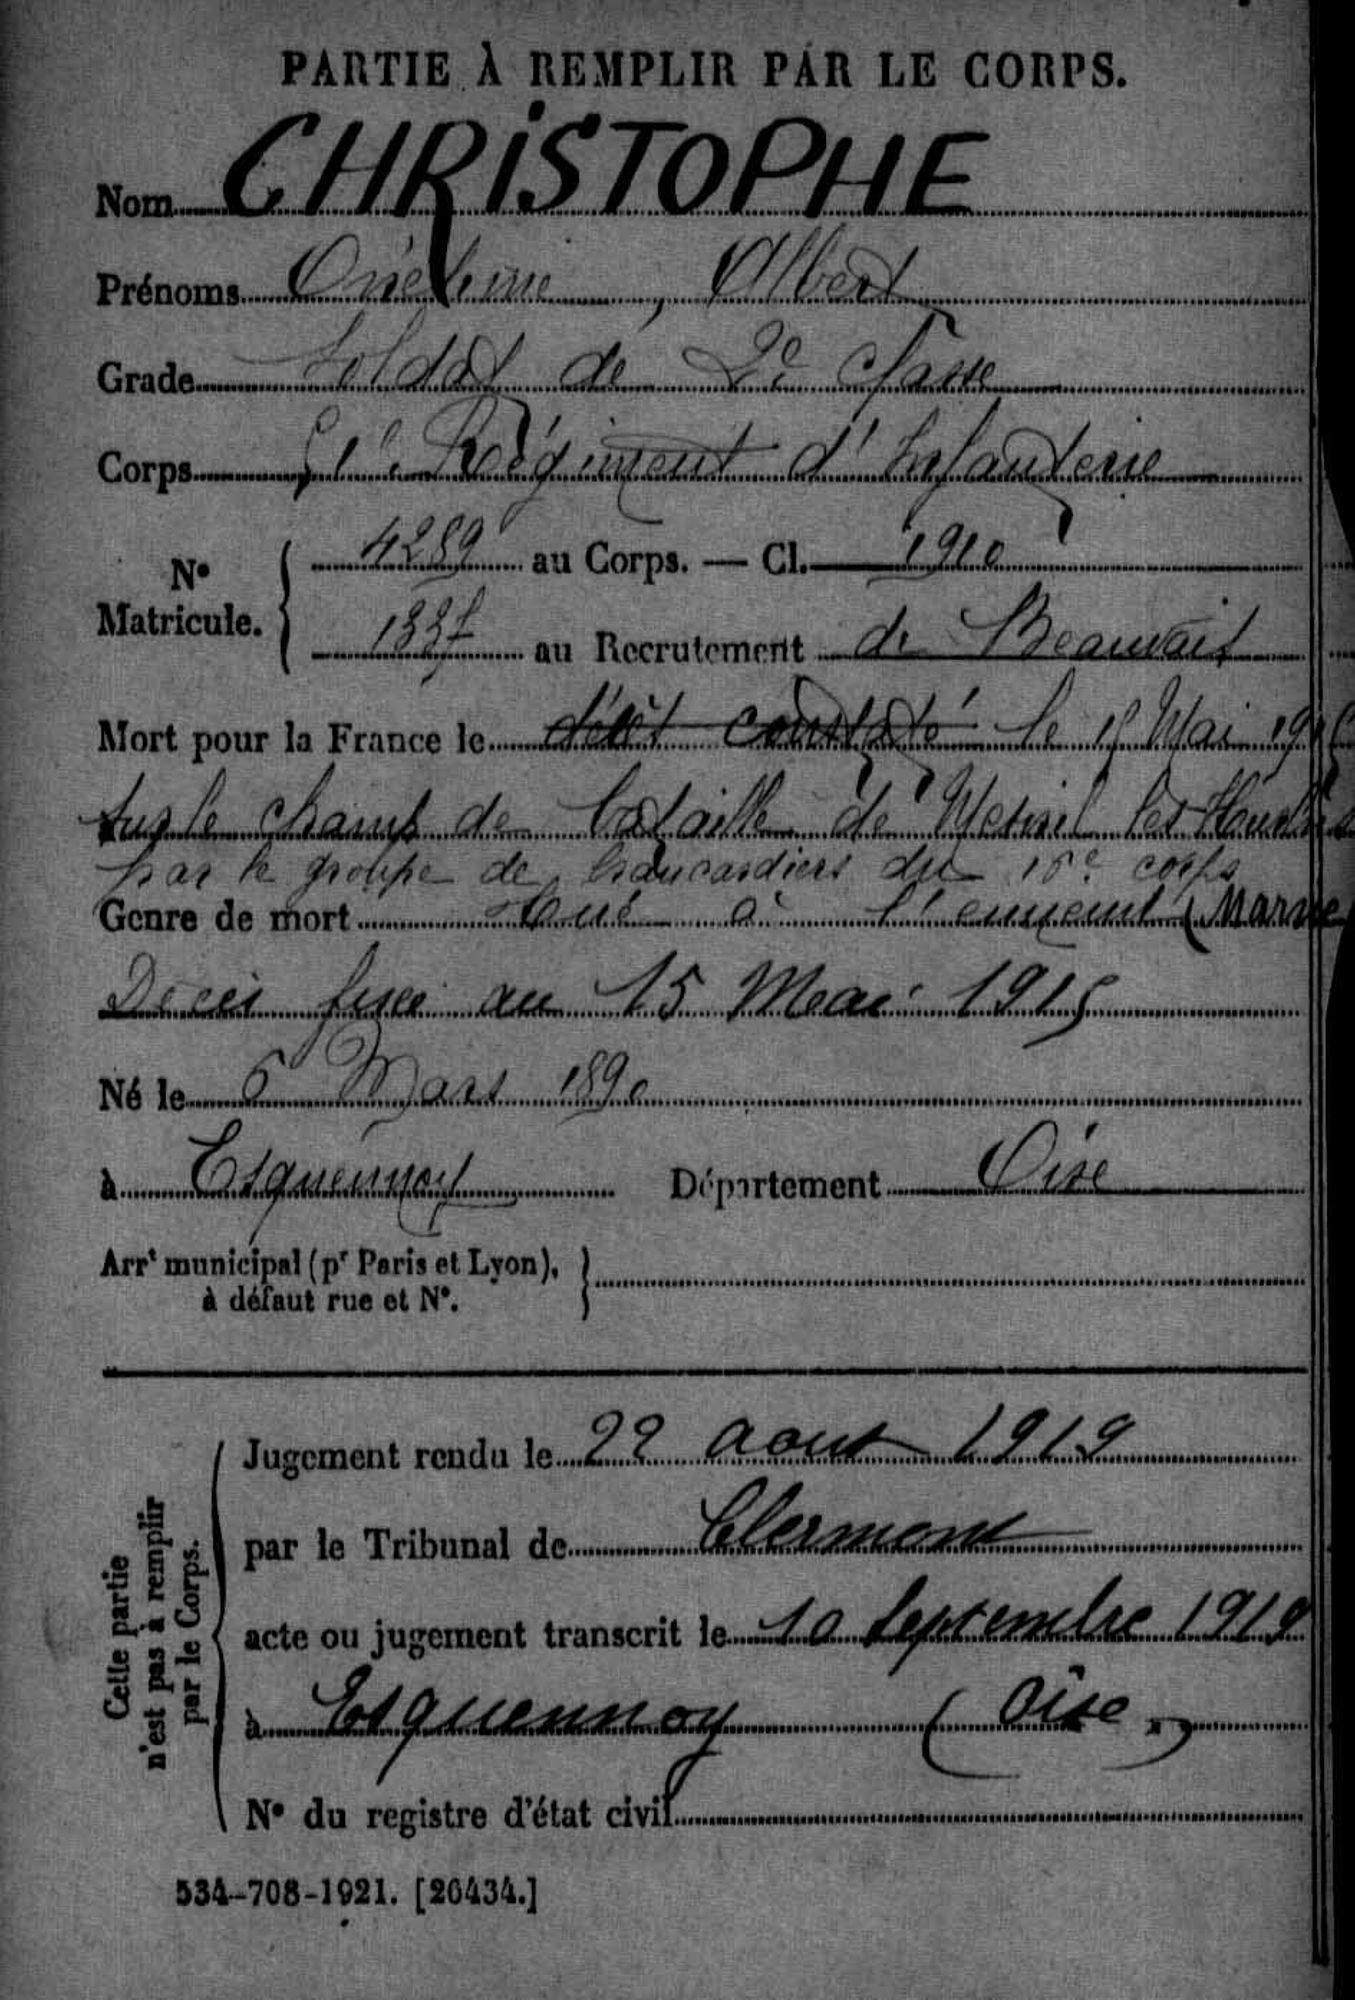 PARTIE À REMPLIR PAR LE CORPS.
Nom CHRISTOPHE
Prénoms Onésime, Albert
Grade Soldat de 2e classe
Corps 51e Régiment d'Infanterie
No Matricule. 4289 au Corps. — Cl. 1910
au Recrutement de Beauvais
Mort pour la France le décès constaté le 15 Mai 1915
sur le champ de bataille de Mesnil les Hurlus
par le groupe de brancardiers du corps
Genre de mort Tué à l'ennemi (Marne)
Décès fixé au 15 Mai 1915
Né le 6 Mars 1890
à Esquennoy Département Oise
Arrt municipal (pr Paris et Lyon),
à défaut rue et No.
Cette partie
n'est pas à remplir
par le Corps.
Jugement rendu le 22 aout 1919
par le Tribunal de Clermont
acte ou jugement transcrit le 10 Septembre 1919
à Esquennoy (Oise)
No du registre d'état civil
534-708-1921. [26434.]